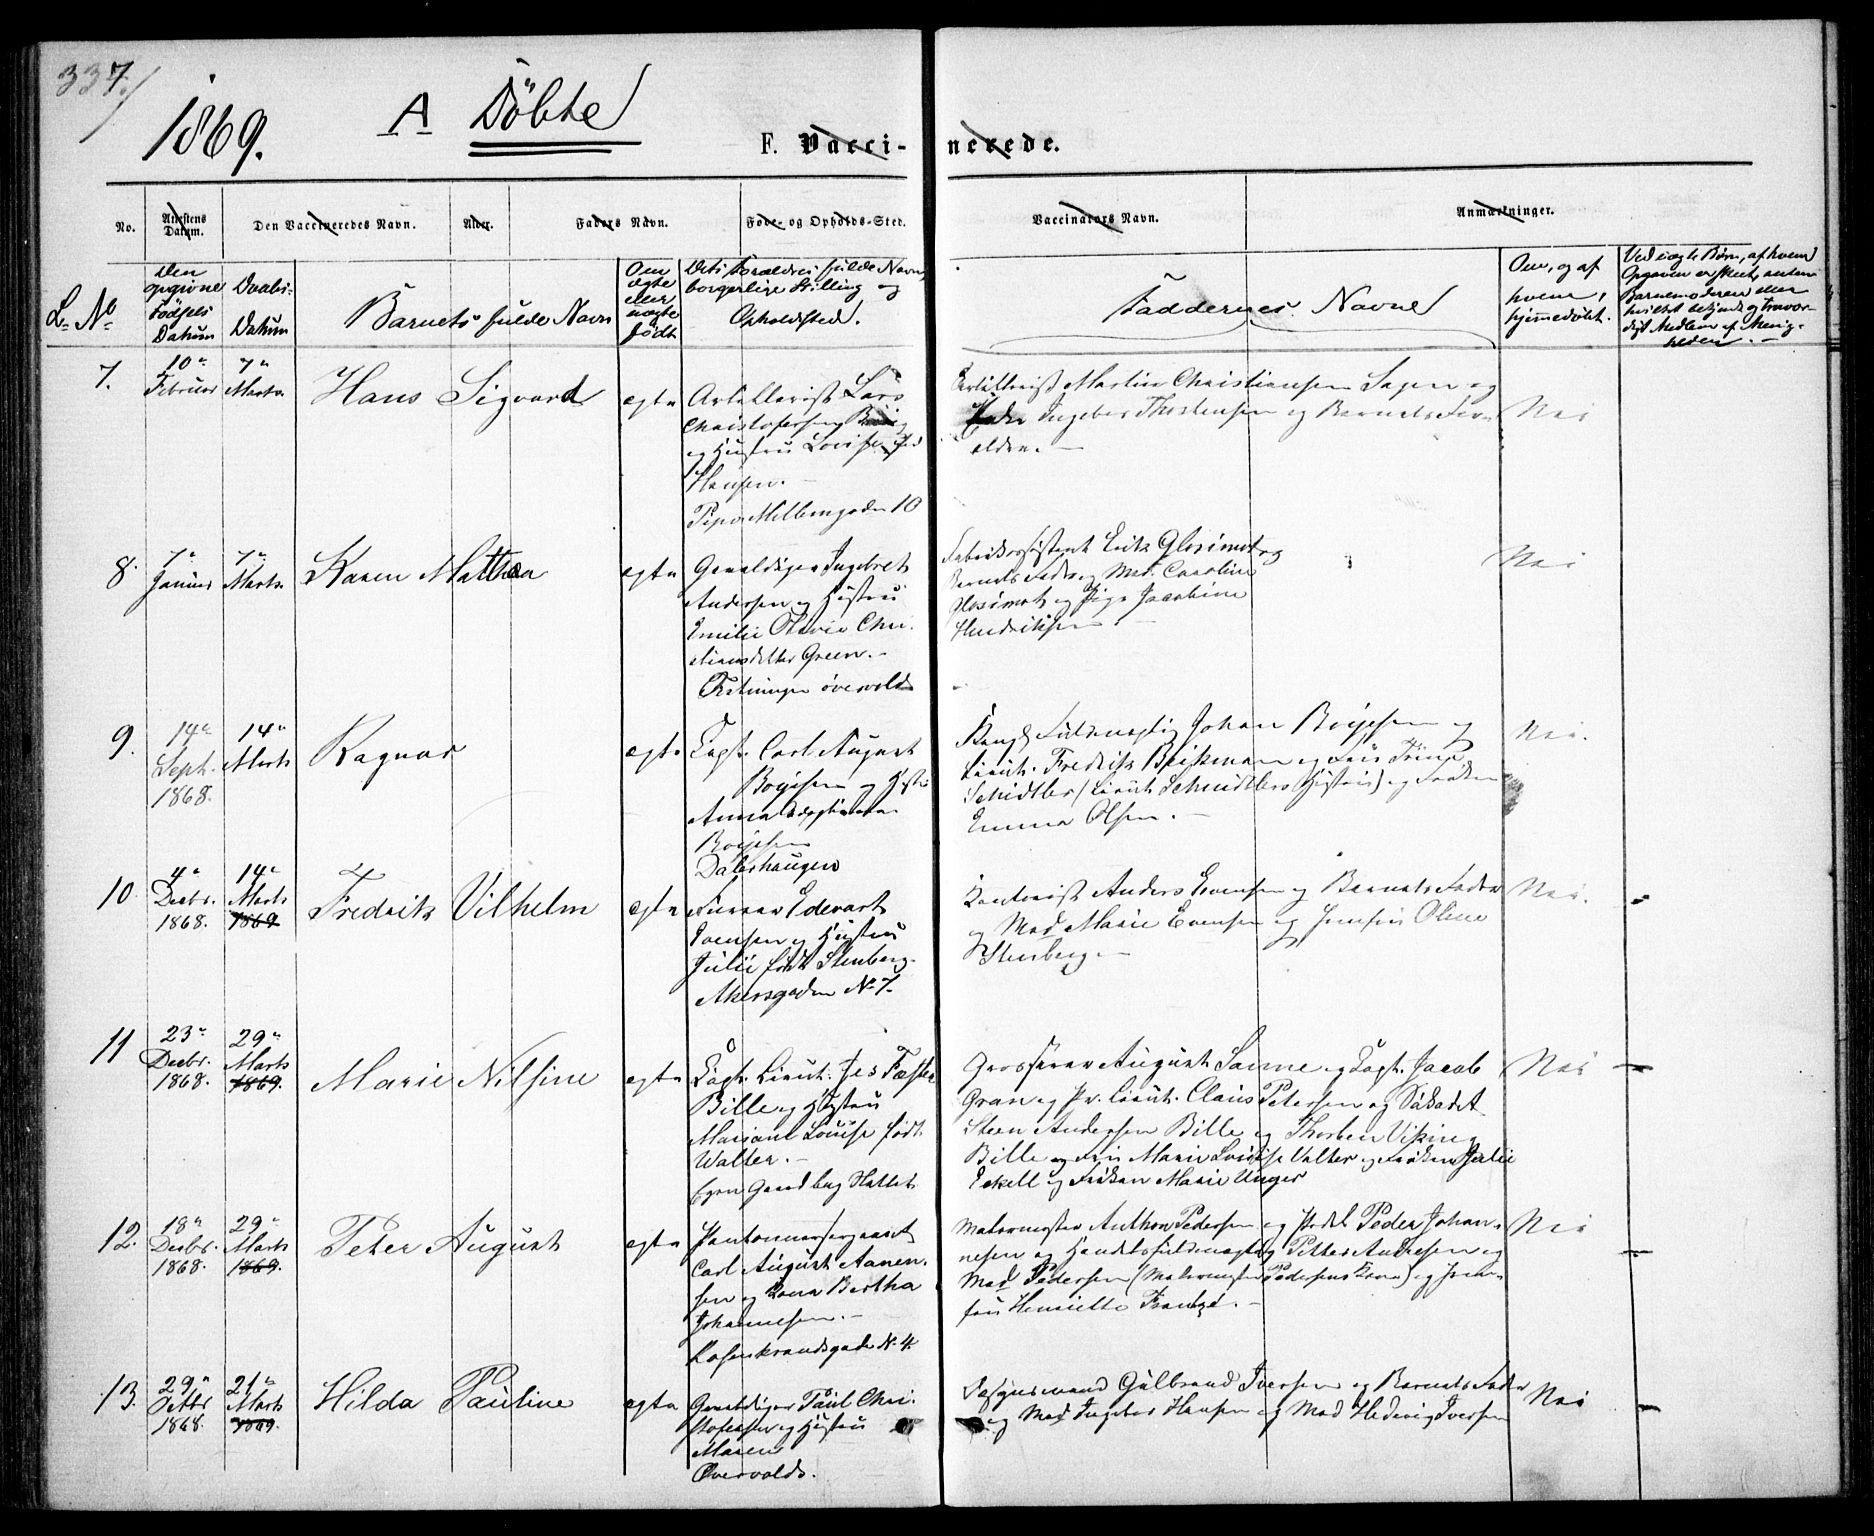 337/
1869.
A Döbte
F. Vaccinerede.
No.
Attestens Datum.
Den Vaccineredes Navn.
Alder.
Faders Navn.
Føde- og Opholds-Sted.
Vaccinators Navn.
Anmærkninger.
L. No
Den opgivne Fødsels Datum
Daabs-Datum
Barnets fulde Navn
Om ægte eller uægte født
Dets Forældres fulde Navn, borgerlige Stilling og Opholdsted.
Faddernes Navne
Om, og af hvem, hjemmedøbt.
Ved uægte Børn, af hvem Opgaven er skeet, enten Barnemoderen eller hvilket bekjendt og troværdigt Medlem af Menigheden.
7.
10de Februar
7de Marts
Hans Sigvard
ægte
Artillerist Lars
Christofersen
og Hustru Lovise fød
Hansen.
Pipervik Møllergaden 10
Artillerist Martin Christiansen Sagen og
Ingebor Thorstensen og Barnets For-
ældre.
Nei
8.
7de Januar
7de Marts
Karen Mathea
ægte
Gevaldiger Ingebret
Andersen og Hustru
Emilie Olavia Chri-
stiansdatter Green.
Fæstningen øvervold
Fabrikassistent Erik Glosimot og
Barnets Fader og Mad. Caroline
Glosimot og Pige Jacobine
Hendriksen
Nei
9.
14de Sept. 1868.
14de Marts
Ragnar
ægte
Capt. Carl August
Boyesen og Hustru
Anna
Boyesen
Dalshaugen
Fuldmægtig Johan Boyesen og
Lieut. Fredrik Beichman og Fru Trine
Schidtler (Lieut. Schmidtlers Hustru) og Frøken
Emma Olsen.
Nei.
10.
4de Decbr. 1868.
14de Marts 1869
Fredrik Vilhelm
ægte
Furer Edevart
Evensen og Hustru
Julie født Stenberg.
Akersgaden No 7.
Kontorist Anders Evensen og Barnets Fader
og Mad Marie Evensen og Jomfru Oline
Stenberg
Nei.
11
23de Decbr. 1868.
29de Marts 1869.
Marie Nilsine
ægte
Capt. Lieut. Jes Fæster
Bille og Hustru
Mariane Louise født
Walter.
Egen Gaard bag Slottet
Grosserer August Sanne og Capt. Jacob
Gran og Pr. Lieut. Claus Petersen og Søkadet
Steen Andersen Bille og Thorben Viking
Bille og Fru Marie Lovise Valter og Frøken Julie
Eckell og Frøken Marie Unger
Nei
12.
18de Decbr. 1868.
29de Marts 1869.
Peter August
ægte
Pantonneersergeant
Carl August Aanen-
sen og Kona Bertha
Johannesen.
Rosenkrandsgade No 4.
Malermester Anthon Pedersen og Peder Johan-
nesen og Handelsfuldmægtig Petter Andresen og
Mad Pedersen (Malermester Pedersens Kone) og Jom-
fru Henriette Frantze.
Nei
13.
29de Octbr 1868.
21de Marts 1869.
Hilda Pauline
ægte
Gevaldiger Paul Chri-
stofersen og Hustru
Maren
Øvervolds.
Gulbrand Iversen og Barnets Fader
og Mad Ingebor Hansen og Mad Hedevig Iversen
Nei